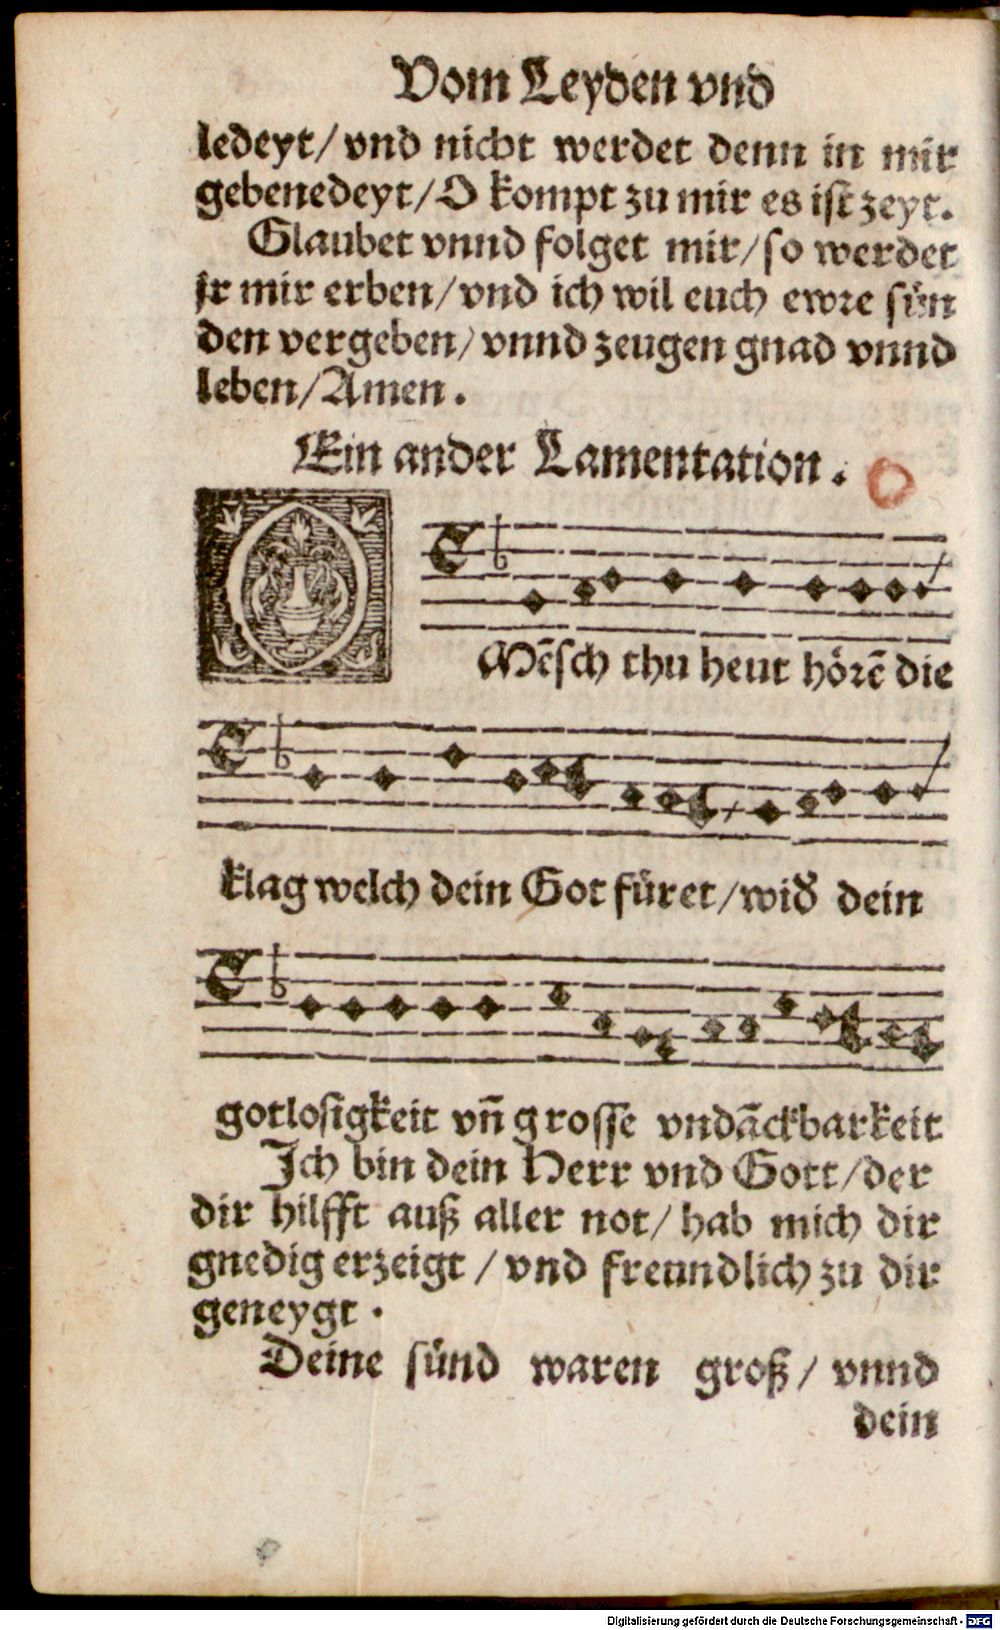 Vom Leyden vnd
ledeyt/ vnd nicht werdet denn in mir
gebenedeyt/ O kompt zu mir es ist zeyt.
Glaubet vnnd folget mir/ so werdet
jr mir erben/ vnd ich wil euch ewre sün
den vergeben/ vnnd zeugen gnad vnnd
leben/ Amen.
Ein ander Lamentation.
O
Mēsch thu heut hörē die
klag welch dein Got füret/ wid̕ dein
gotlosigkeit vn̄ grosse vndāckbarkeit
Ich bin dein Herr vnd Gott/ der
dir hilfft auß aller not/ hab mich dir
gnedig erzeigt / vnd freundlich zu dir
geneygt.
Deine sünd waren groß/ vnnd
dein
Digitalisierung gefördert durch die Deutsche Forschungsgemeinschaft - DFG